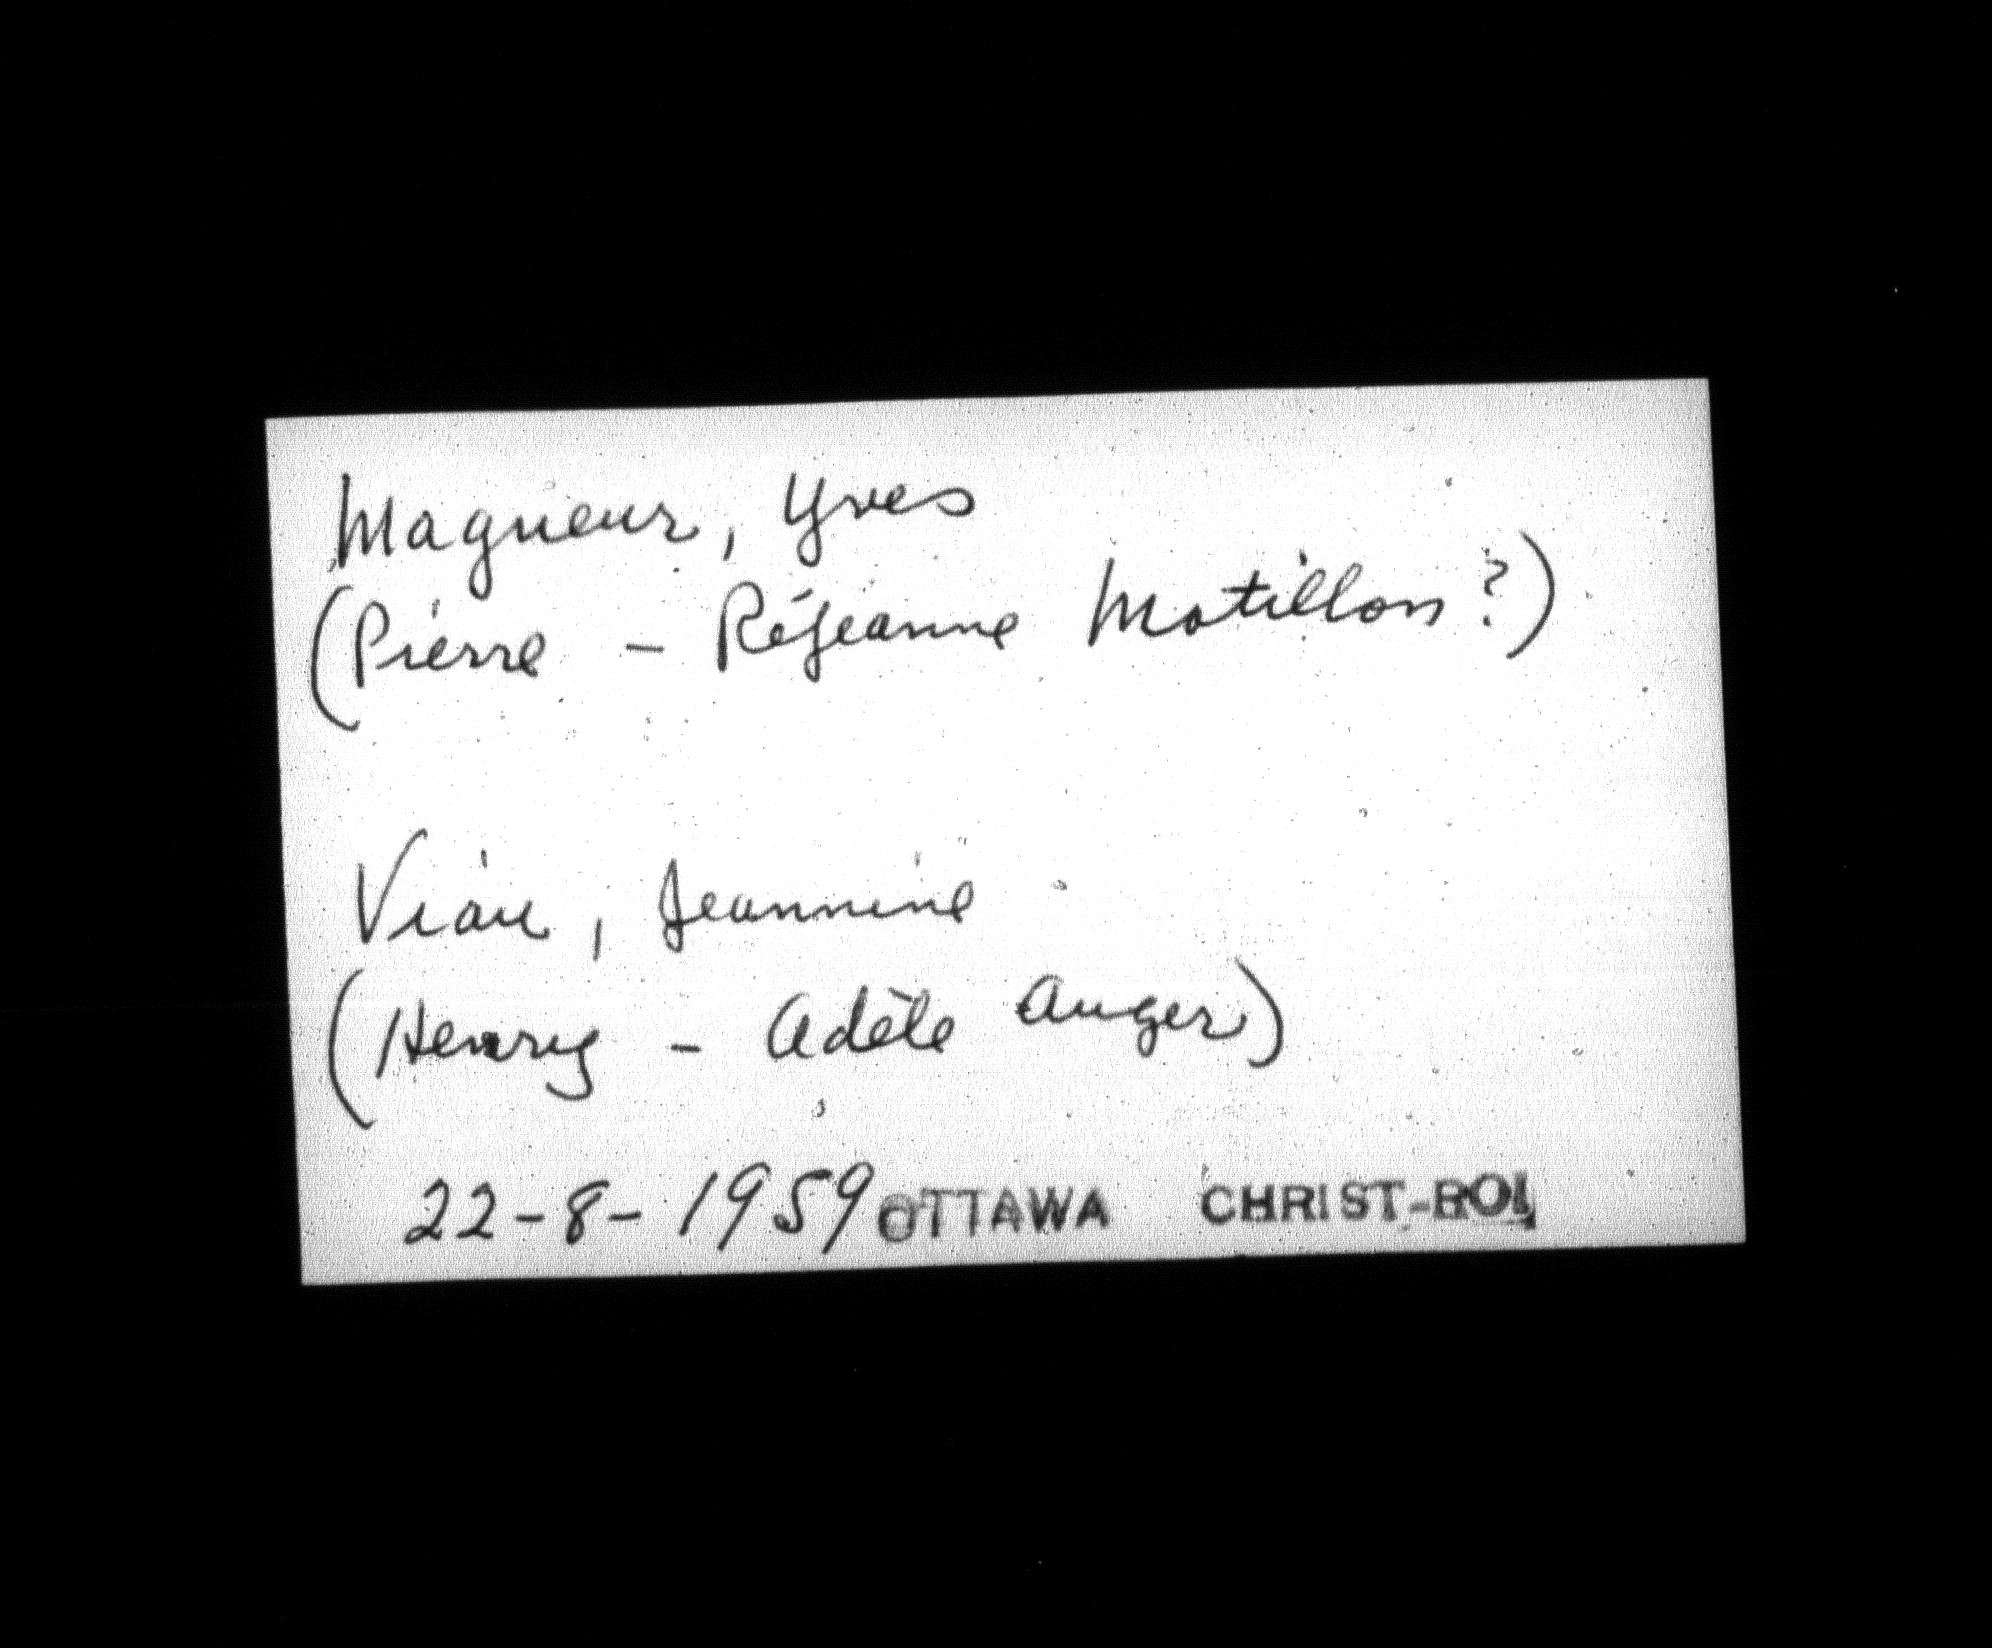 Magneur, Yves
(Pierre - Réjeanne Motillon?)
Viau, Jeannine
(Henry - Adèle Auger)
22-8-1959 OTTAWA CHRIST-ROI